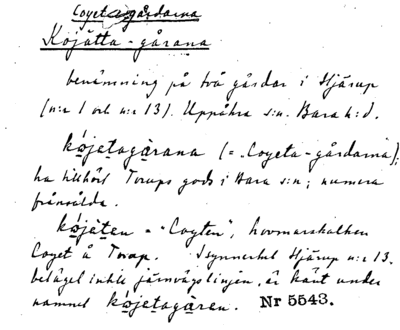 Coyetagårdarna
Köjätta-gårana
benämning på två gårdar i Hjärup
(n:r 1 och n:r 13). Uppåkra s:n. Bara h:d.
köjetagårana (= Coyeta-gårdarna);
ha tillhört Torups gods i Bara s:n; numera
frånsålda.
köjäten = "Coyten", hovmarskalken
Coyet å Torup. I synnerhet Hjärup n:r 13.
beläget intill järnvägslinjen, är känt under
namnet köjetagåren. Nr 5543.